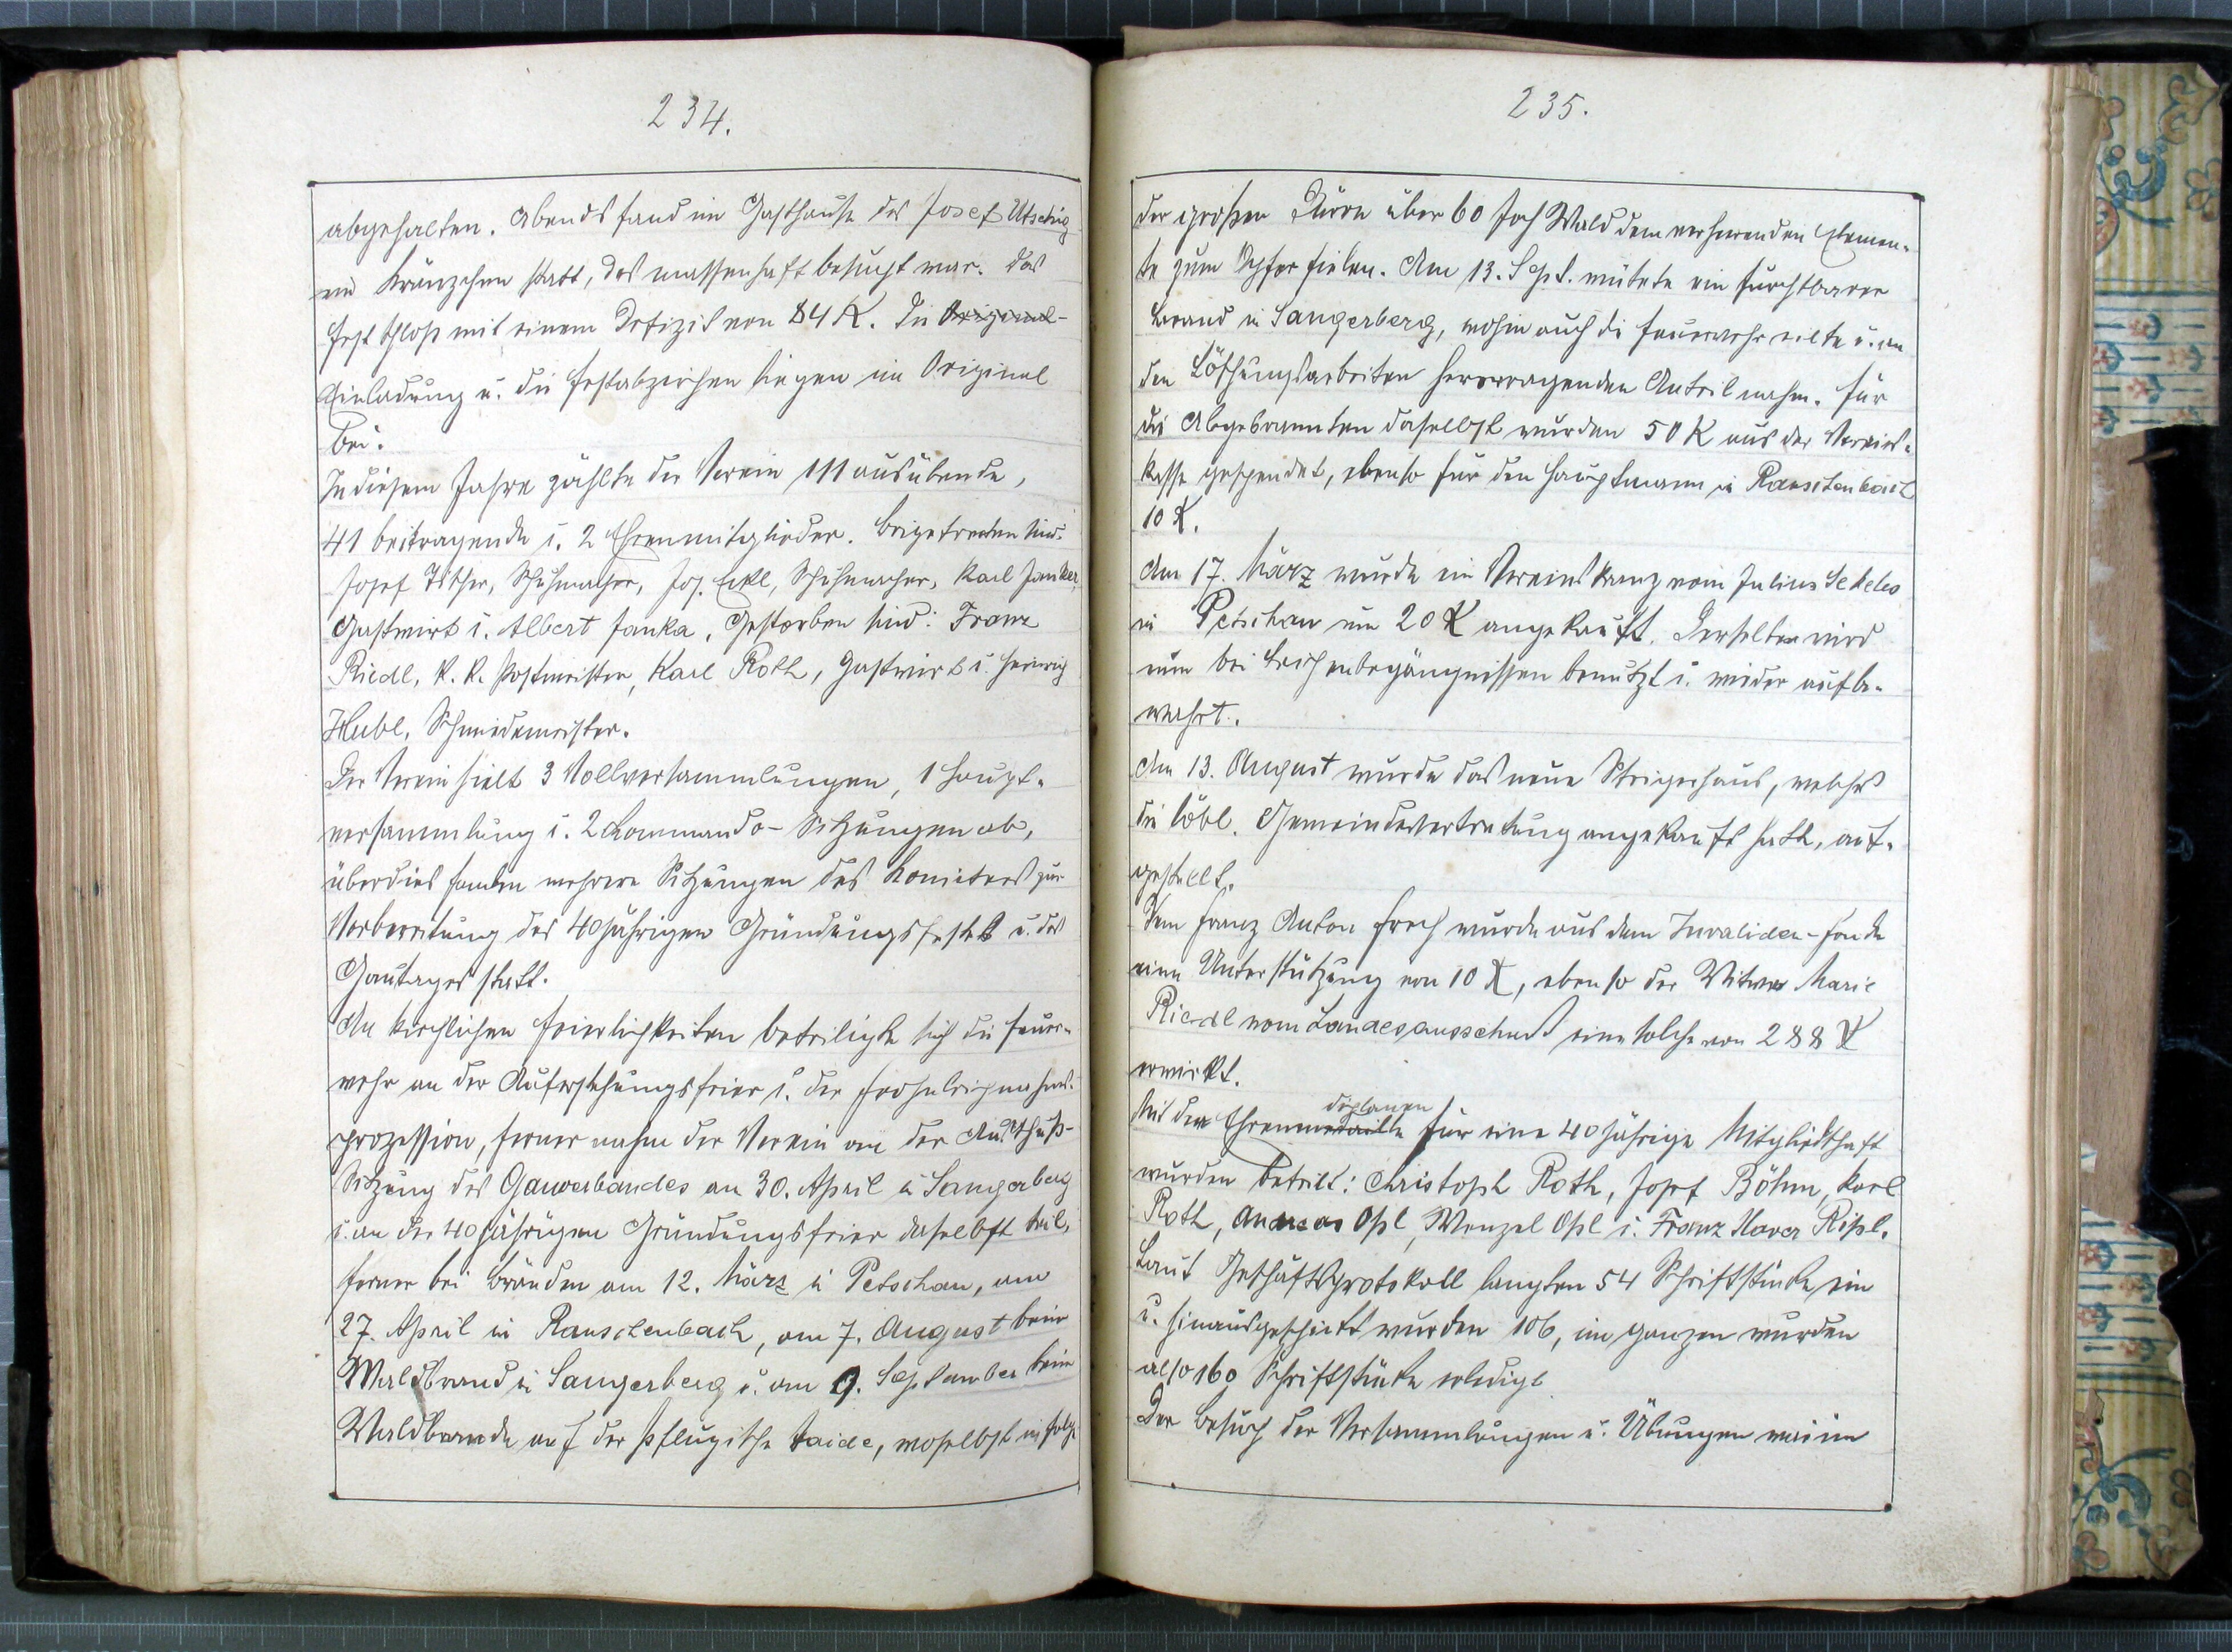 234.
abgehalten. Abends fand im Gasthause des Josef Utschig
ein Kränzchen statt, das massenhaft besucht war. Das
Fest schloß mit einem Defizit von 84 K. Die Original-
Einladung u. die Festabzeichen liegen im Original
bei.
In diesem Jahre zählte der Verein 111 ausübende,
41 beitragende u. 2 Ehrenmitglieder. Beigetreten sind:
Josef Schuhmacher, Jos. Eckl, Schuhmacher, Karl Janker,
Gastwirt u. Albert Janka. Gestorben sind: Franz
Riedl, k. k. Postmeister, Karl Roth, Gastwirt u. Heinrich
Hubl, Schmiedemeister.
Der Verein hielt 3 Vollversammlungen, 1 Haupt-
versammlung u. 2 Kommando-Sitzungen ab,
überdies fanden mehrere Sitzungen des Komitees zur
Vorbereitung des 40jährigen Gründungsfestes u. des
Gautages statt.
An kirchlichen Feierlichkeiten beteiligte sich die Feuer-
wehr an der Auferstehungsfeier u. der Frohnleichnahms-
prozession, ferner nahm der Verein an der Ausschuß-
Sitzung des Gauverbandes am 30. April in Sangerberg
u. an der 40jährigen Gründungsfeier daselbst teil,
ferner bei Bränden am 12. März in Petschau, am
27. April in Rauschenbach, am 7. August beim
Waldbrand in Sangerberg u. am 9. September beim
Waldbrande auf der Pflugische Haide, woselbst infolge
235.
der großen Dürre über 60 Joch Wald dem verheerenden Elemen-
te zum Opfer fielen. Am 13. Sept. wütete ein furchtbarer
Brand in Sangerberg, wohin auch die Feuerwehr eilte u. an
den Löschungsarbeiten hervorragenden Anteil nahm. Für
die Abgebrannten daselbst wurden 50 K aus der Vereins-
kasse gespendet, ebenso für den Hauptmann in Rauschenbach
10 K.
Am 17. März wurde ein Vereinskranz vom Julius
in Petschau um 20 K angekauft. Derselbe wird
nun bei Leichenbegängnissen benutzt u. wieder aufbe-
wahrt.
Am 13. August wurde das neue Steigerhaus, welches
die löbl. Gemeindevertretung angekauft hatte, auf-
gestellt.
Dem Franz Anton Froch wurde aus dem Invaliden-Fonde
eine Unterstützung von 10 K, ebenso der Witwe Marie
Riedl vom Landesausschuß eine solche von 288 K
erwirkt.
diplomen
Mit den Ehrenmedaille für eine 40 jährige Mitgliedschaft
wurden beteilt: Christoph Roth, Josef Böhm, Karl
Roth, Andreas Opl, Wenzel Opl u. Franz Xaver Ripl.
Laut Geschäftsprotokoll langten 54 Schriftstücke ein
u. hinausgeschickt wurden 106, im ganzen wurden
also 160 Schriftstücke erledigt
Der Besuch der Versammlungen u. Übungen war im